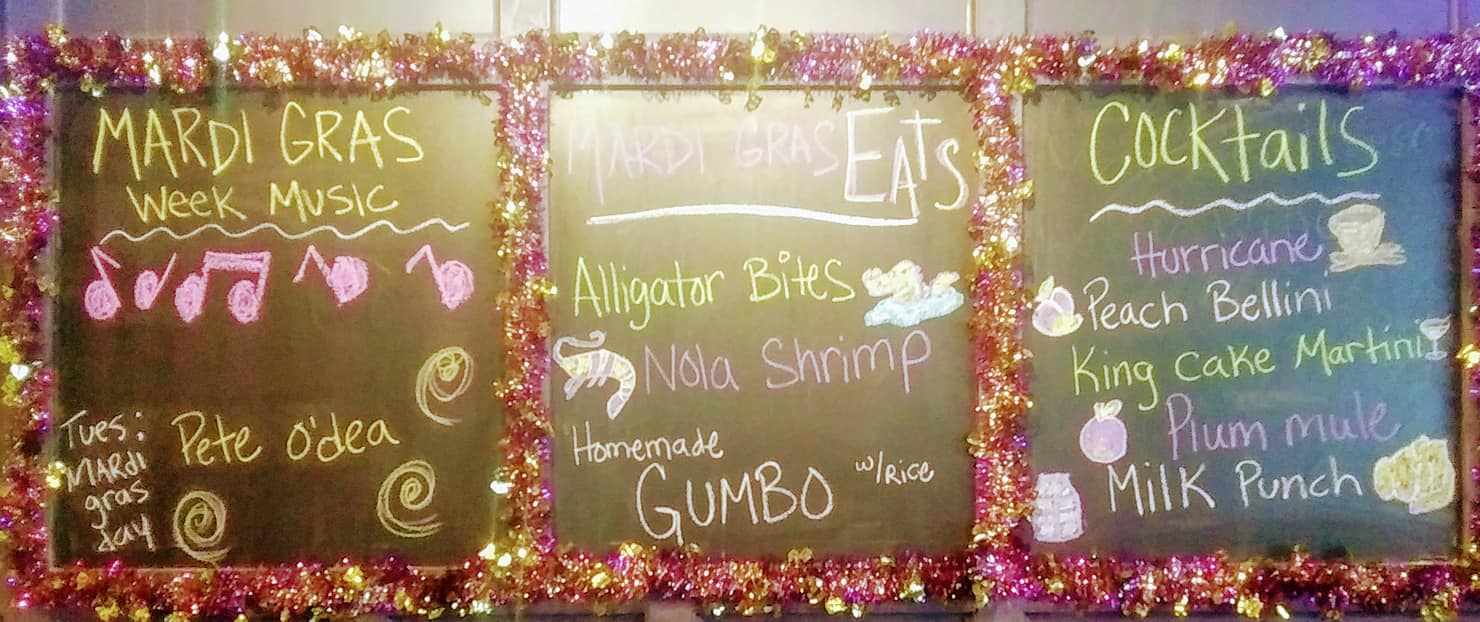 MARDI GRAS
Week Music
Tues:
MARDi
gras
day
Pete O'dea
MARDI GRAS EATS
Alligator Bites
Nola Shrimp
Homemade
GUMBO w/Rice
Cocktails
Hurricane
Peach Bellini
King cake Martini
Plum mule
Milk Punch